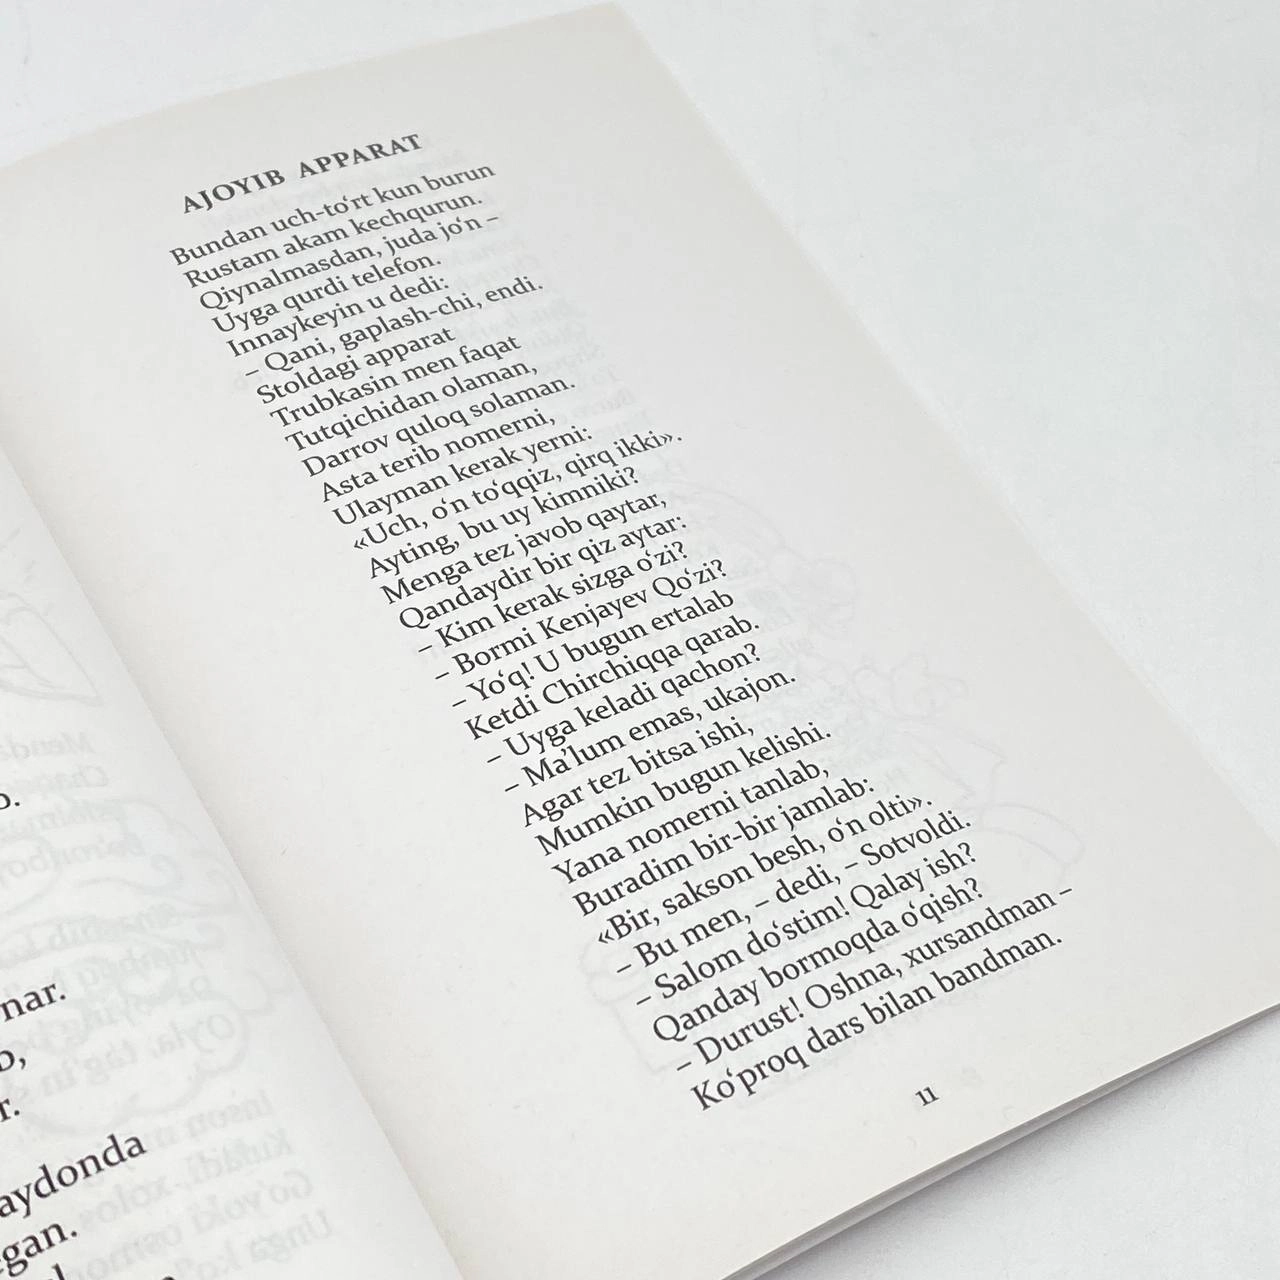 AJOYIB APPARAT
Bundan uch-to‘rt kun burun
Rustam akam kechqurun.
Qiynalmasdan, juda jo‘n –
Uyga qurdi telefon.
Innaykeyin u dedi:
– Qani, gaplash-chi, endi.
Stoldagi apparat
Trubkasin men faqat
Tutqichidan olaman,
Darrov quloq solaman.
Asta terib nomerni,
Ulayman kerak yerni:
«Uch, o‘n to‘qqiz, qirq ikki».
Ayting, bu uy kimniki?
Menga tez javob qaytar,
Qandaydir bir qiz aytar:
– Kim kerak sizga o‘zi?
– Bormi Kenjayev Qo‘zi?
– Yo‘q! U bugun ertalab
Ketdi Chirchiqqa qarab.
– Uyga keladi qachon?
– Ma’lum emas, ukajon.
Agar tez bitsa ishi,
Mumkin bugun kelishi.
Yana nomerni tanlab,
Buradim bir-bir jamlab:
«Bir, sakson besh, o‘n olti».
– Bu men, – dedi, – Sotvoldi.
– Salom do‘stim! Qalay ish?
Qanday bormoqda o‘qish?
– Durust! Oshna, xursandman –
Ko‘proq dars bilan bandman.
11